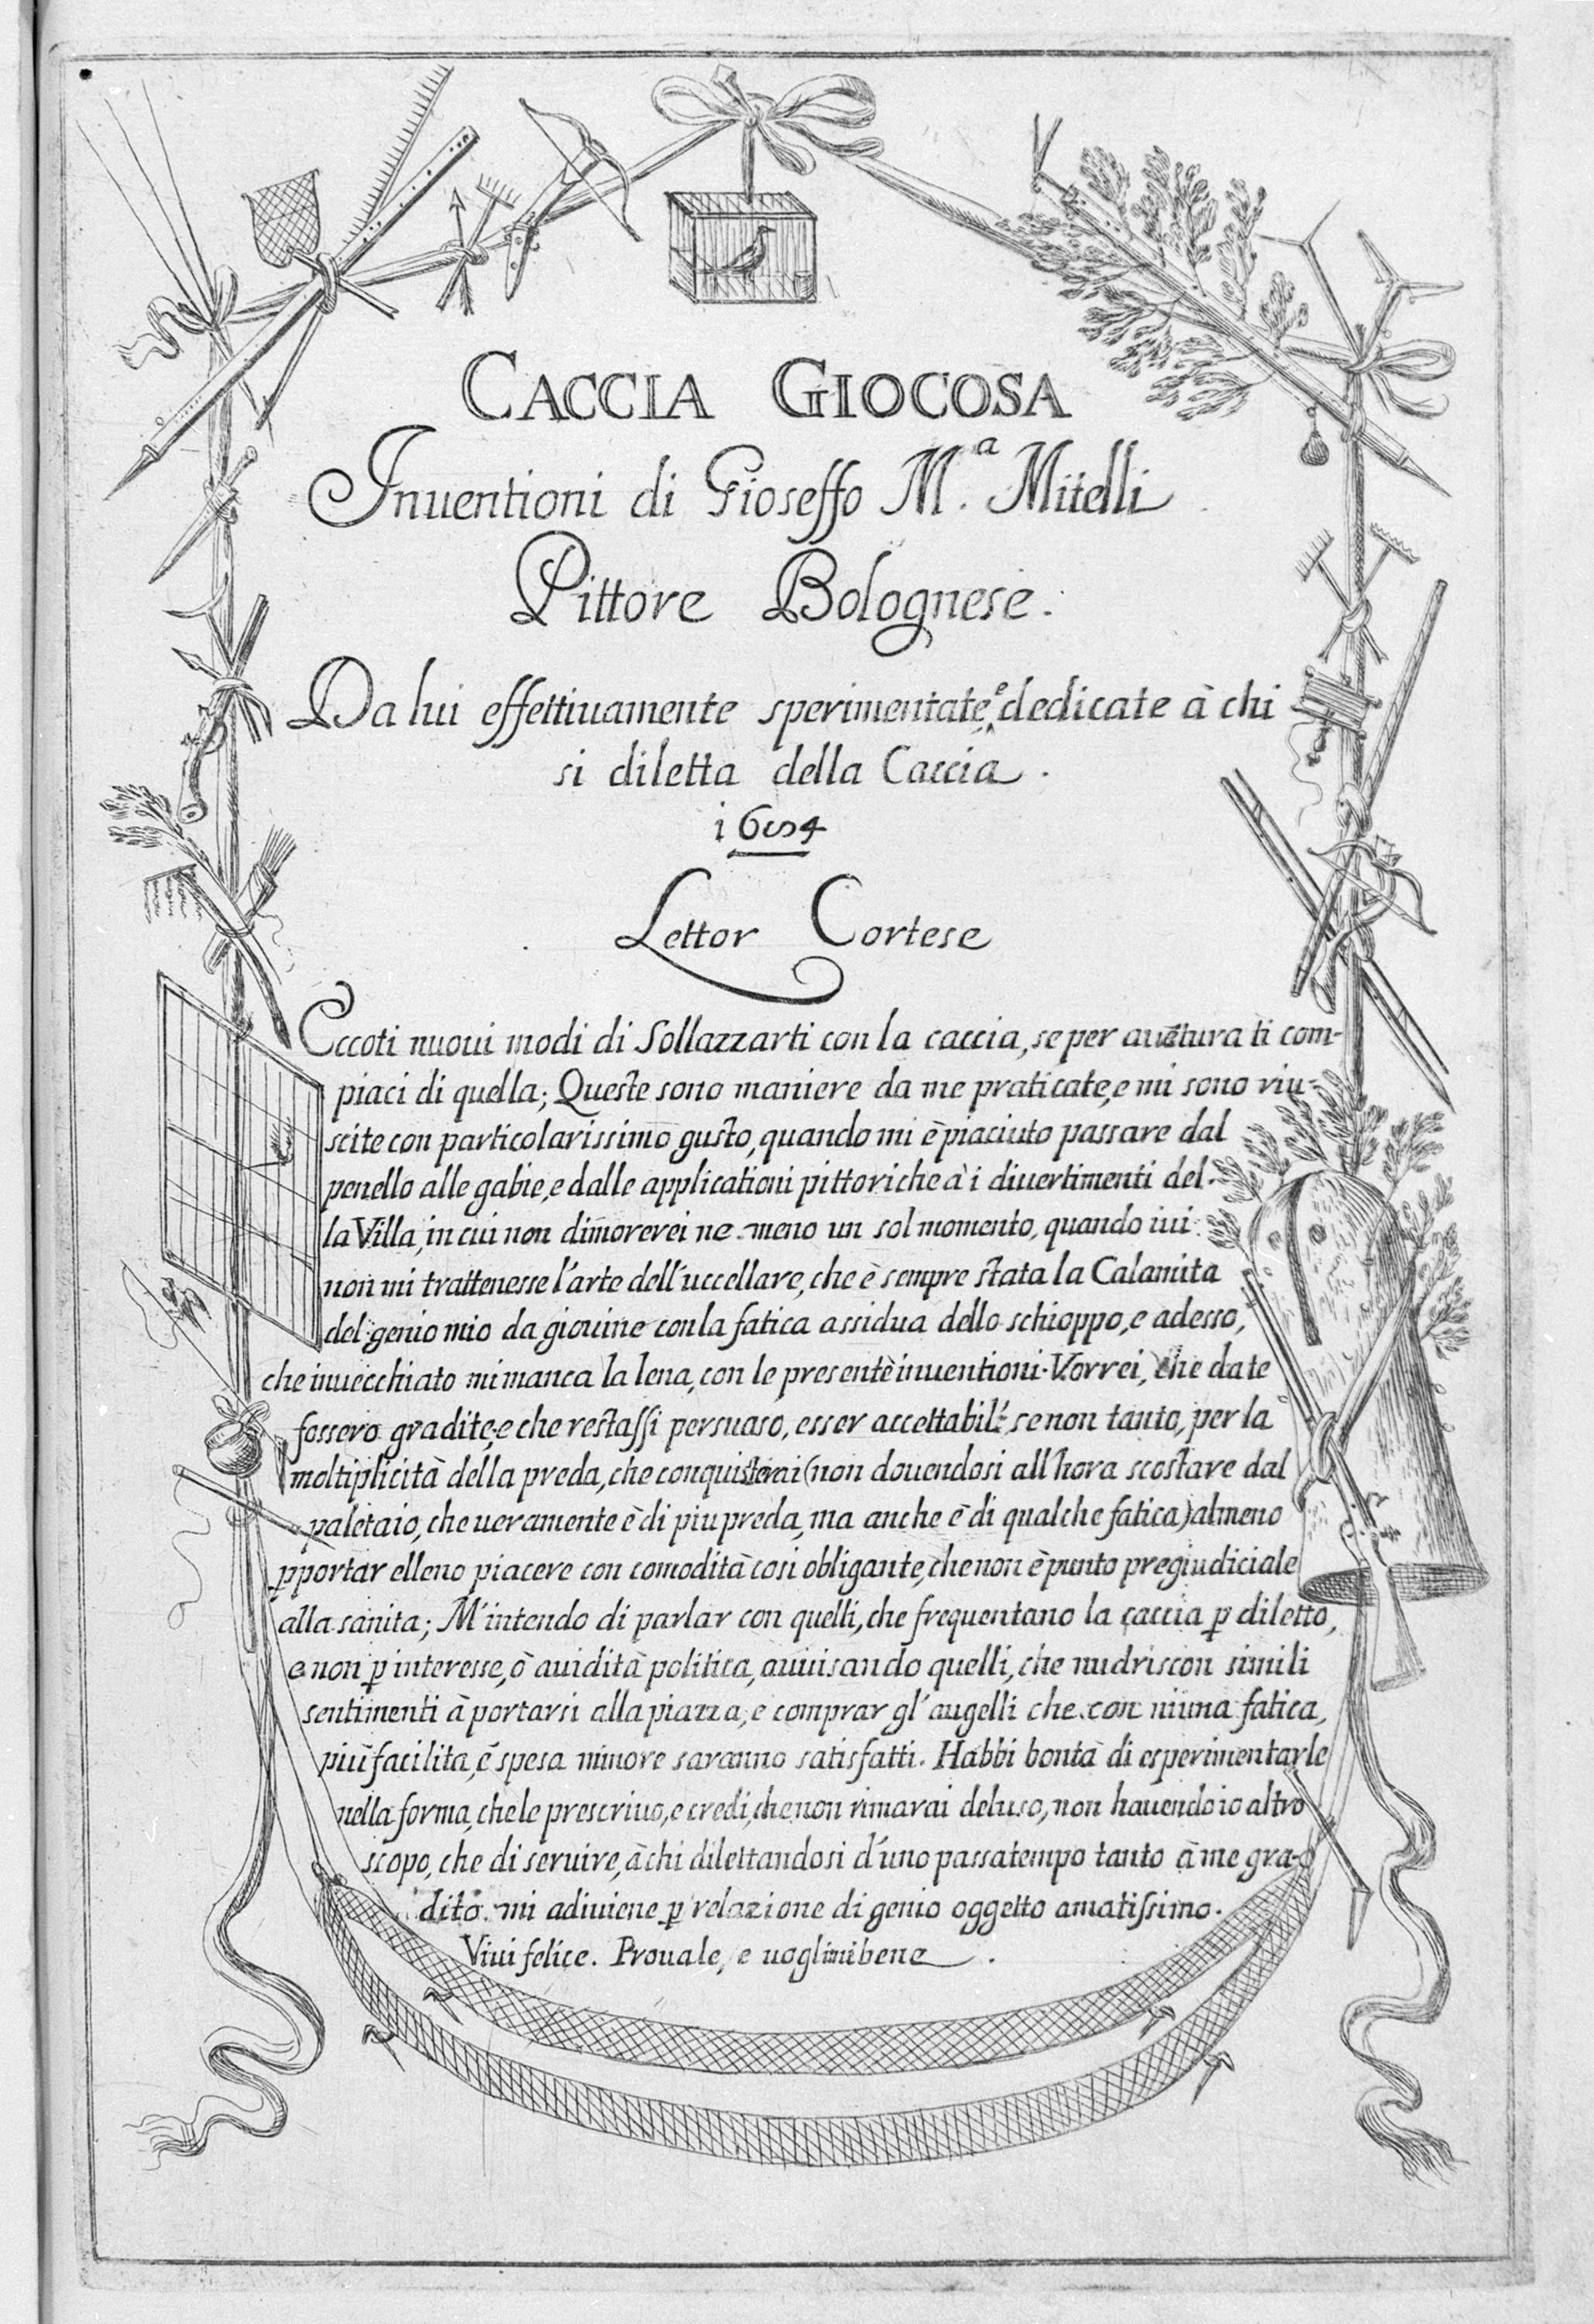 CACCIA GIOCOSA
Inuentioni di Gioseffo M.ª Mitelli
Pittore Bolognese.
Da lui effettiuamente sperimentate, e dedicate à chi
si diletta della Caccia.
Lettor Cortese
Eccoti nuoui modi di Sollazzarti con la caccia, se per auẽtura ti com-
piaci di quella; Queste sono maniere da me praticate, e mi sono riu-
scite con particolarissimo gusto, quando mi è piaciuto passare dal
penello alle gabie, e dalle applicationi pittoriche à i diuertimenti del-
la Villa, in cui non dimorerei ne meno un sol momento, quando iui
non mi trattenesse l'arte dell'uccellare, che è sempre stata la Calamita
del genio mio da giouine con la fatica assidua dello schioppo, e adesso,
che inuecchiato mi manca la lena, con le presente inuentioni. Vorrei, che da te
fossero gradite, e che restassi persuaso, esser accettabili, se non tanto, per la
moltiplicità della preda, che conquisterai (non douendosi all'hora scostare dal
paletaio, che ueramente è di piu preda, ma anche è di qualche fatica) almeno
ꝑ portar elleno piacere con comodità così obligante, che non è punto pregiudiciale
alla sanita; M'intendo di parlar con quelli, che frequentano la caccia ꝑ diletto,
e non ꝑ interesse, ò auidità politica, auuisando quelli, che nudriscon simili
sentimenti à portarsi alla piazza, e comprar gl'augelli che con niuna fatica,
più facilita, e spesa minore saranno satisfatti. Habbi bontà di esperimentarle
nella forma, che le prescriuo, e credi, che non rimarai deluso, non hauendo io altro
scopo, che di seruire, à chi dilettandosi d'uno passatempo tanto à me gra-
dito mi adiuiene ꝑ relazione di genio oggetto amatissimo.
Viui felice. Prouale, e uoglimi bene.